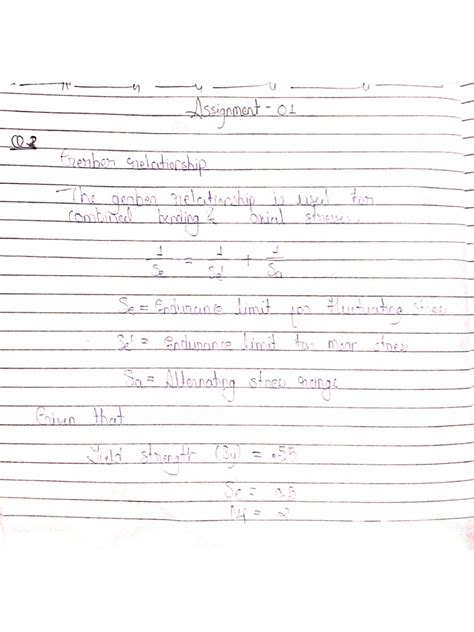 Assignment - 01
Q2
Gerber relationship
The gerber relationship is used for
combined bending & axial stresses.
1/Se = 1/Se' + 1/Sa
Se = Endurance limit for fluctuating stress
Se' = Endurance limit for mean stress
Sa = Alternating stress range
Given that
Yield strength (Sy) = .55
Se = 0.5
= 2